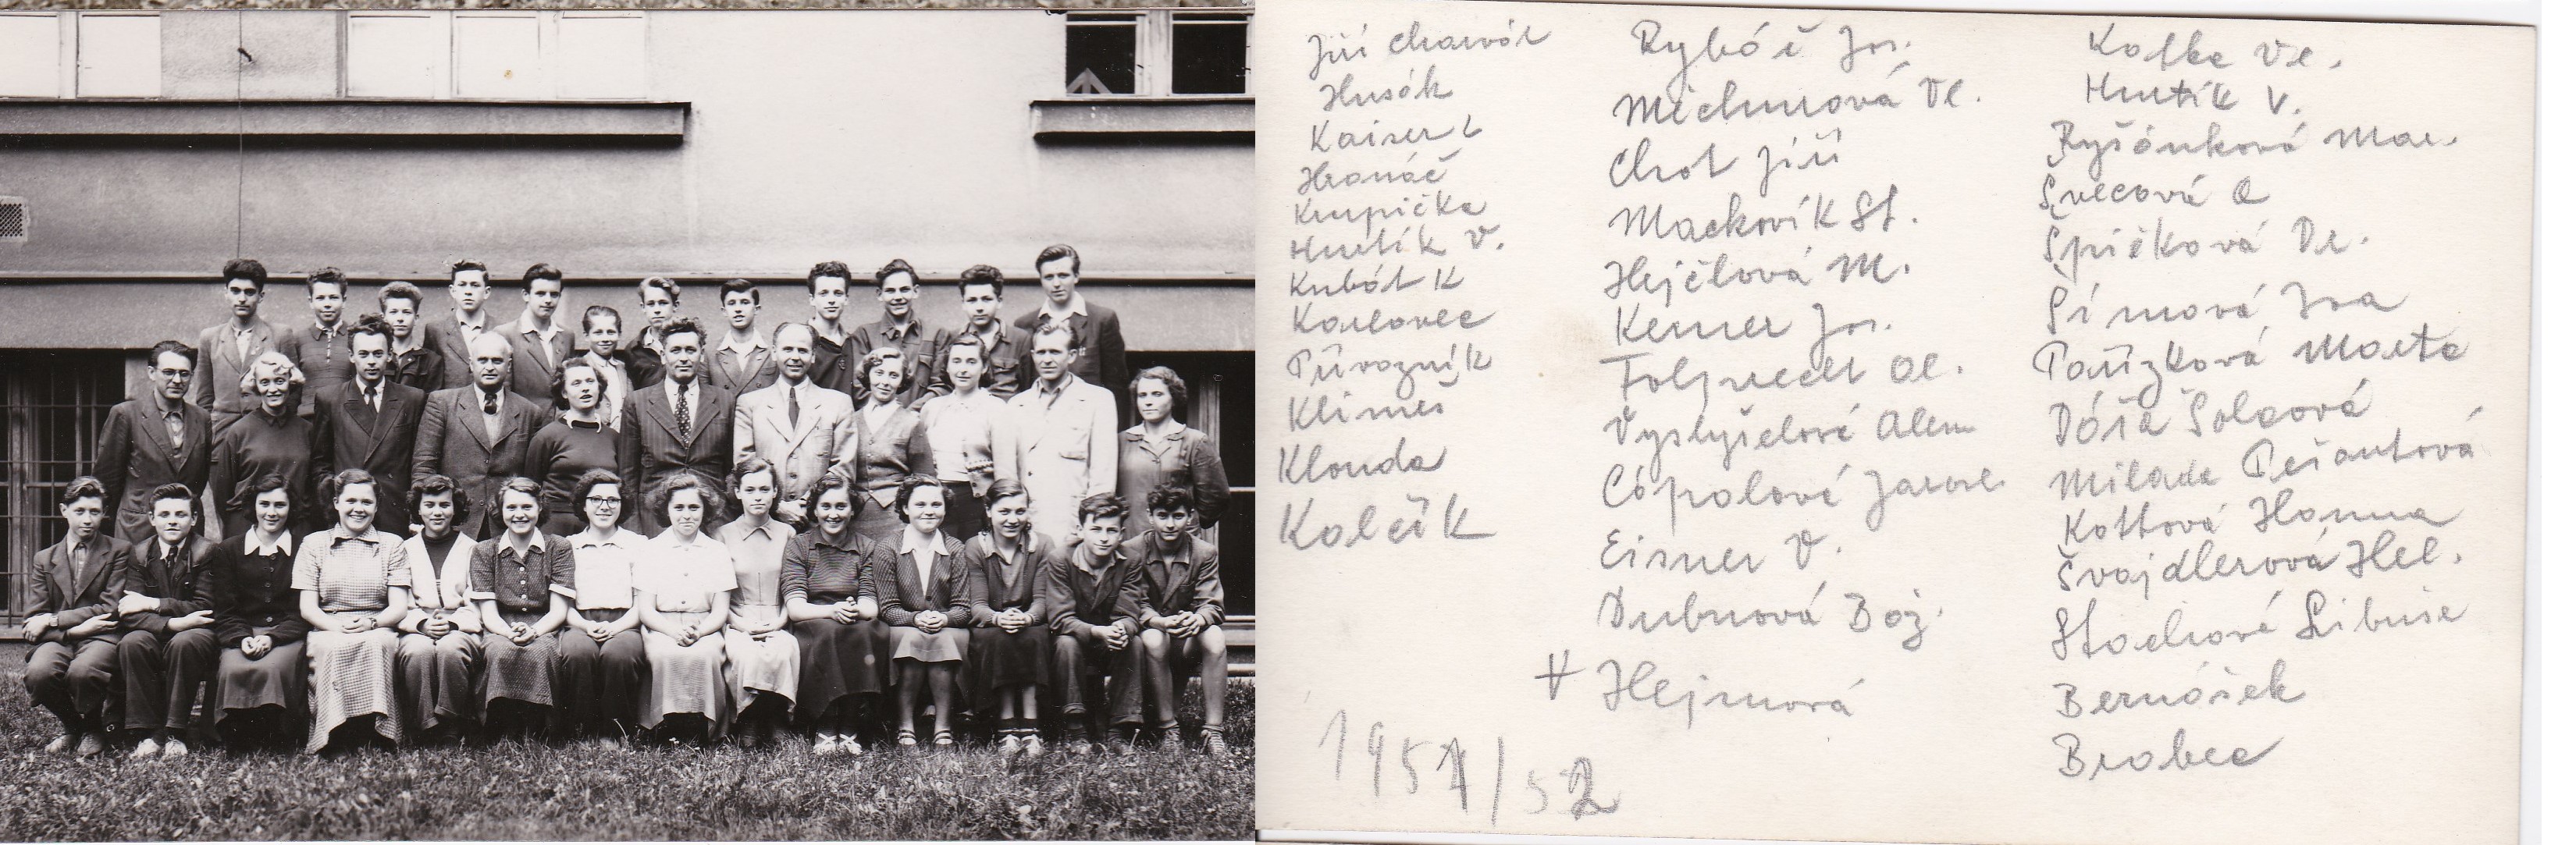 Jiří Charvát
Husák
Kaiser L
Hronáč
Krupička
Hurtík V.
Kubát K
Karlovec
Původník
Klimeš
Klouda
Kolčík
1951/52
Rybář Jos.
Michnová Vl.
Chot Jiří
Mackovík St.
Hejčlová M.
Kerner Jos.
Folprecht Ol.
Vyslyšelová Alena
Cópalová Jarosl.
Eisner V.
Dubnová Bož.
+ Hejmová
Kotka Vl.
Hurtík V.
Ryšánková Mar.
Švecová O
Špičková Vl.
Šímová Iva
Pařízková Marta
Dáša Šolcová
Milada Pešantová
Kottová Hanna
Švajdlerová Hel.
Stachová Libuše
Bernášek
Brabec